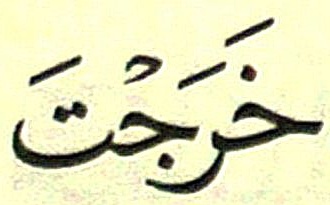 خَرَجْتَ